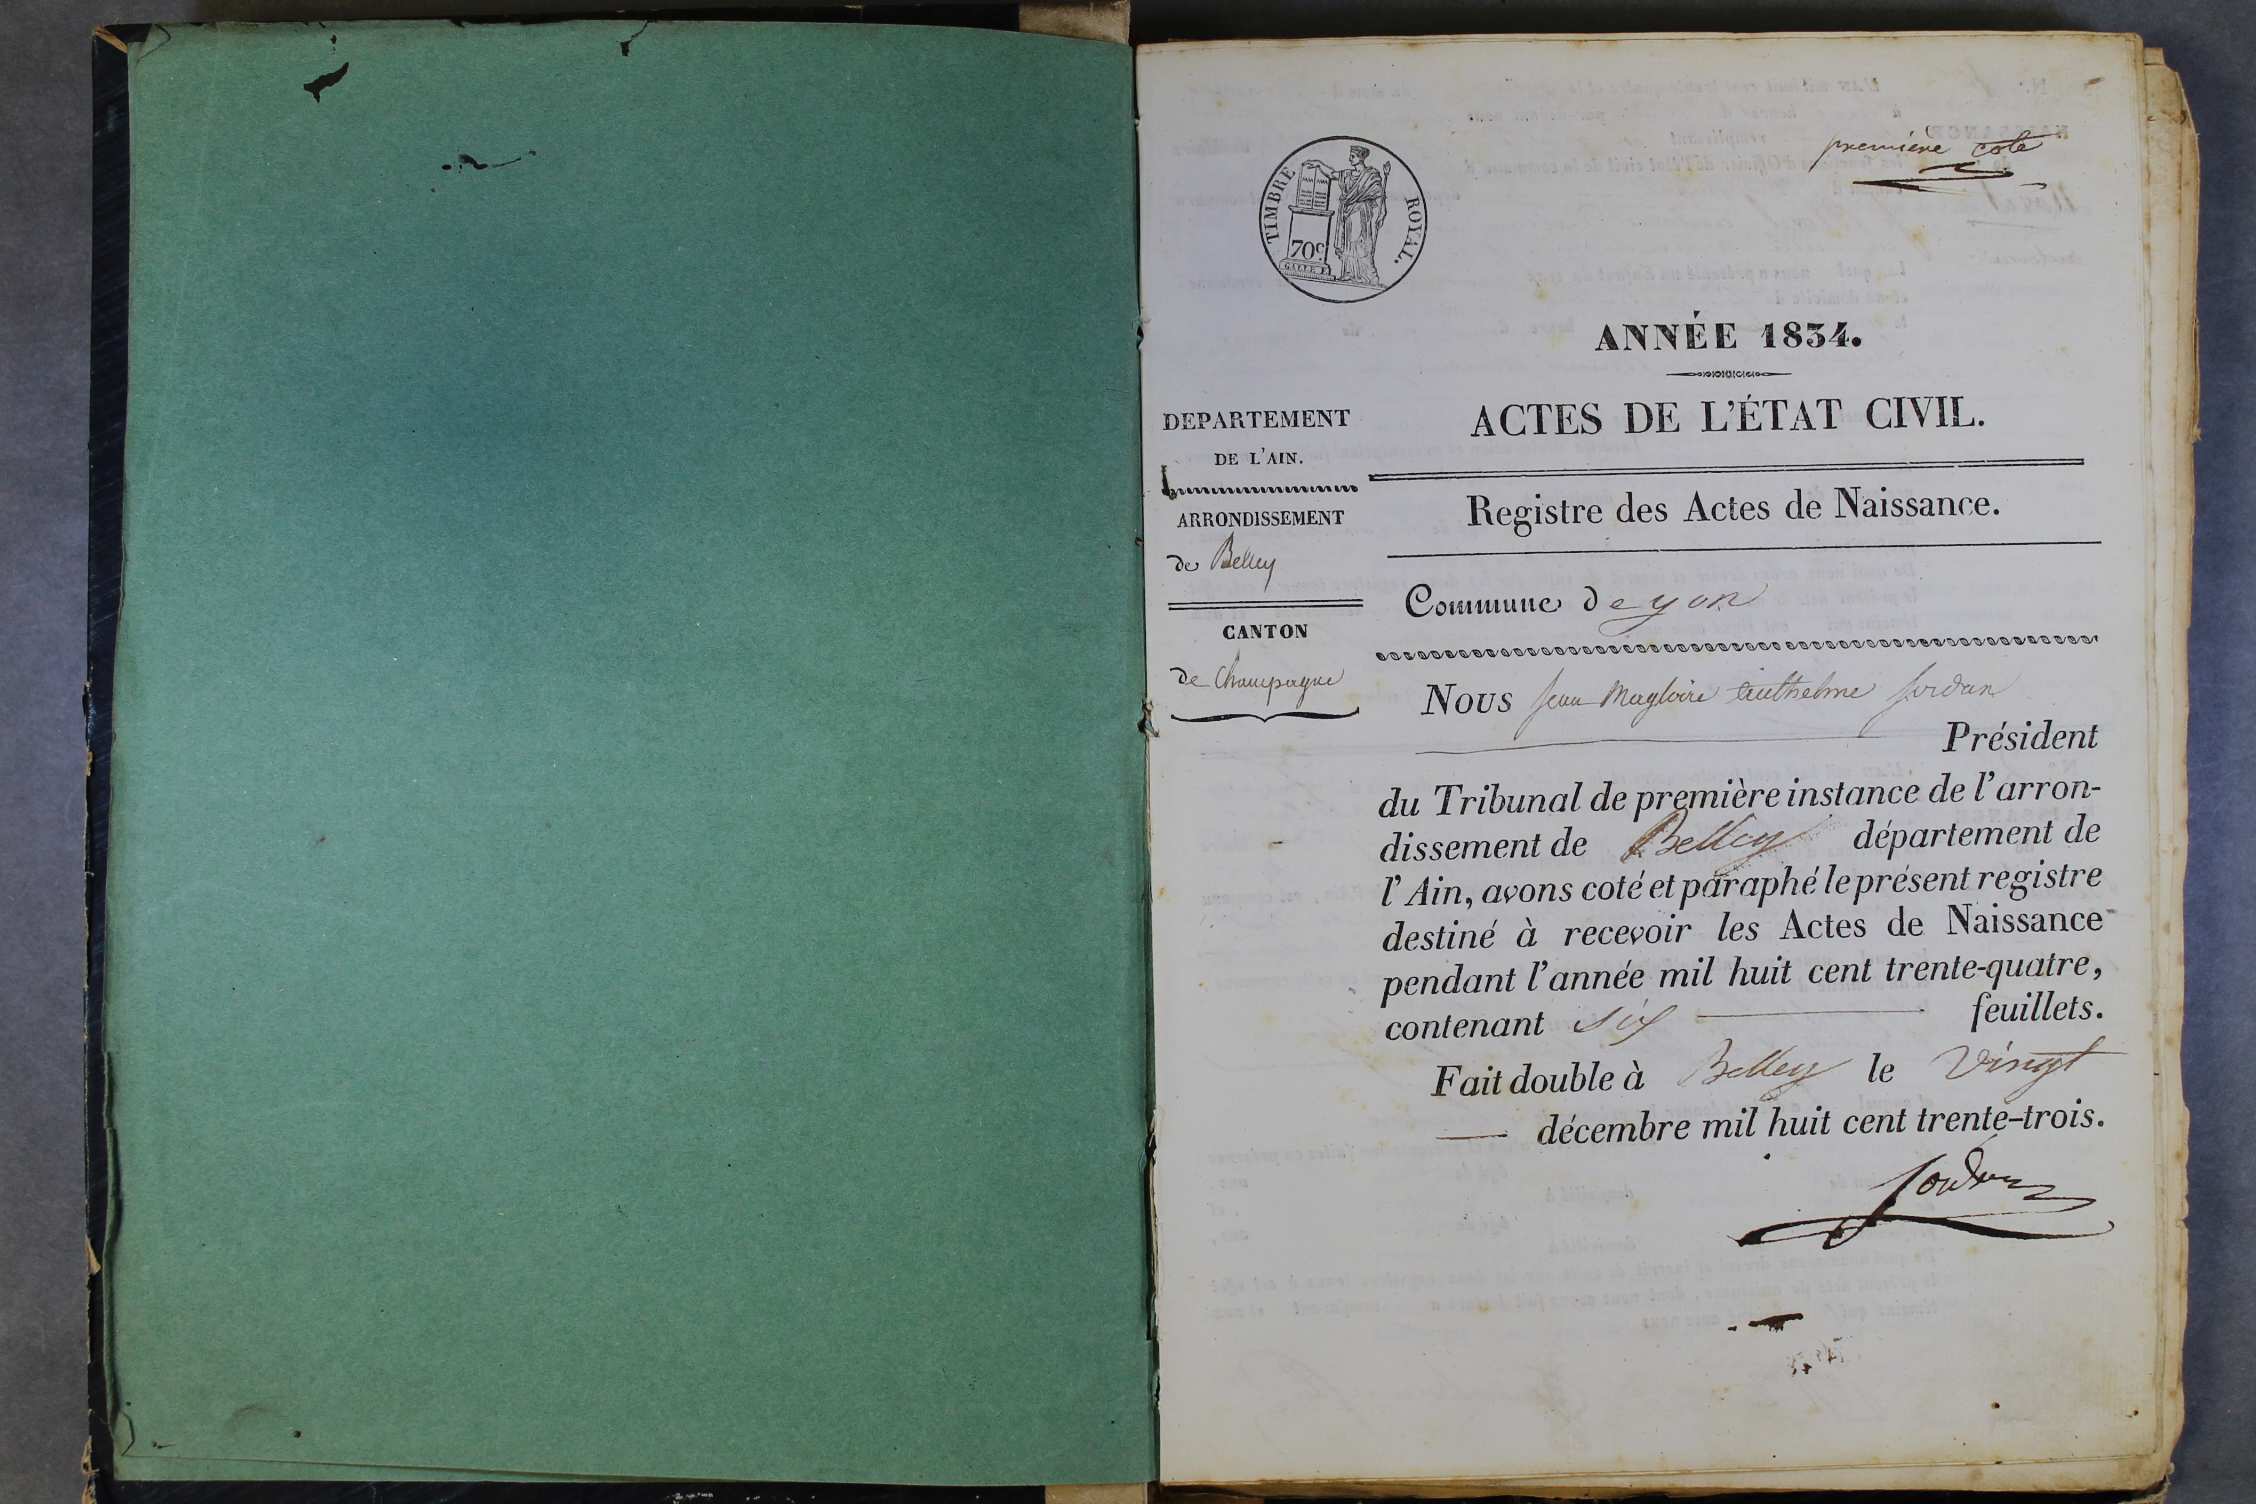 première cote
TIMBRE ROYAL.
70c.
ANNÉE 1834.
ACTES DE L'ÉTAT CIVIL.
DEPARTEMENT
DE L'AIN.
ARRONDISSEMENT
de Belley
CANTON
de Champagne
Registre des Actes de Naissance.
Commune de yon
Nous Jean Magloire Anthelme Jordan
Président
du Tribunal de première instance de l'arron-
dissement de Belley département de
l'Ain, avons coté et paraphé le présent registre
destiné à recevoir les Actes de Naissance
pendant l'année mil huit cent trente-quatre,
contenant six feuillets.
Fait double à Belley le vingt
décembre mil huit cent trente-trois.
Jordan